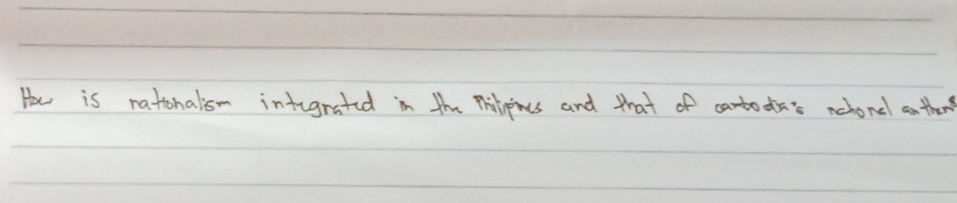 How is nationalism integrated in the Philippines and that of cambodia's national anthems